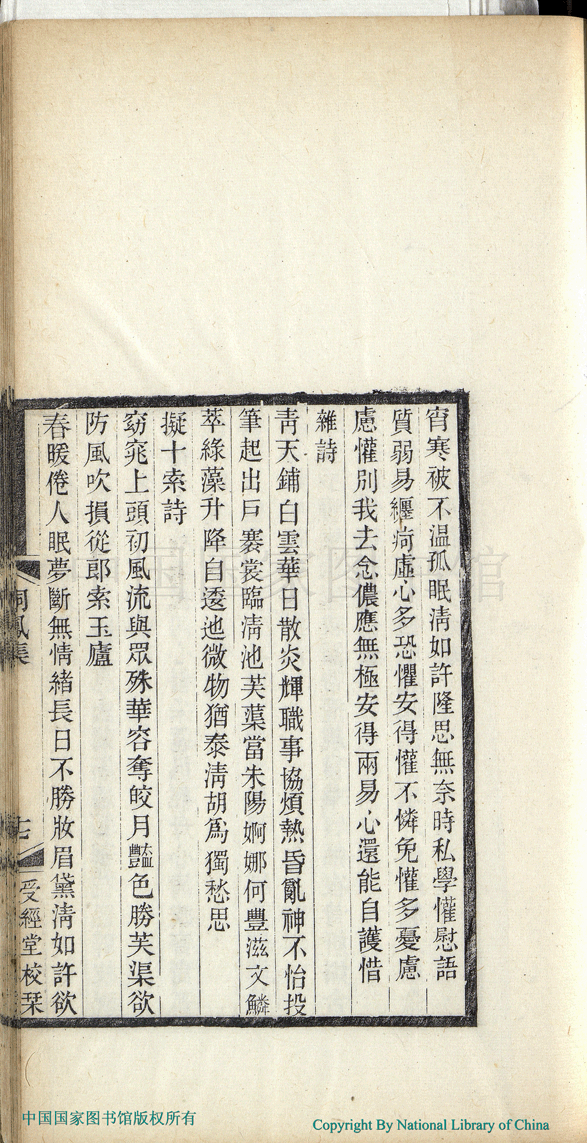 宵寒被不溫孤眠淸如許隆思無奈時私學懽慰語
質弱易纏疴虛心多恐懼安得懽不憐免懽多憂慮
慮懽別我去念儂應無極安得兩易心還能自護惜
雜詩
靑天鋪白雲華日散炎輝職事協煩熱昏亂神不怡投
筆起出戸褰裳臨淸池芙蕖當朱陽婀娜何豐滋文鱗
萃綠藻升降自逶迤微物猶泰淸胡爲獨愁思
擬十索詩
窈窕上頭初風流與眾殊華容奪皎月豔色勝芙渠欲
防風吹損從郎索玉廬
春暖倦人眠夢斷無情緒長日不勝妝眉黛淸如許欲
洞風集
十七
受經堂校栞
中国国家图书馆
中国国家图书馆版权所有
Copyright By National Library of China